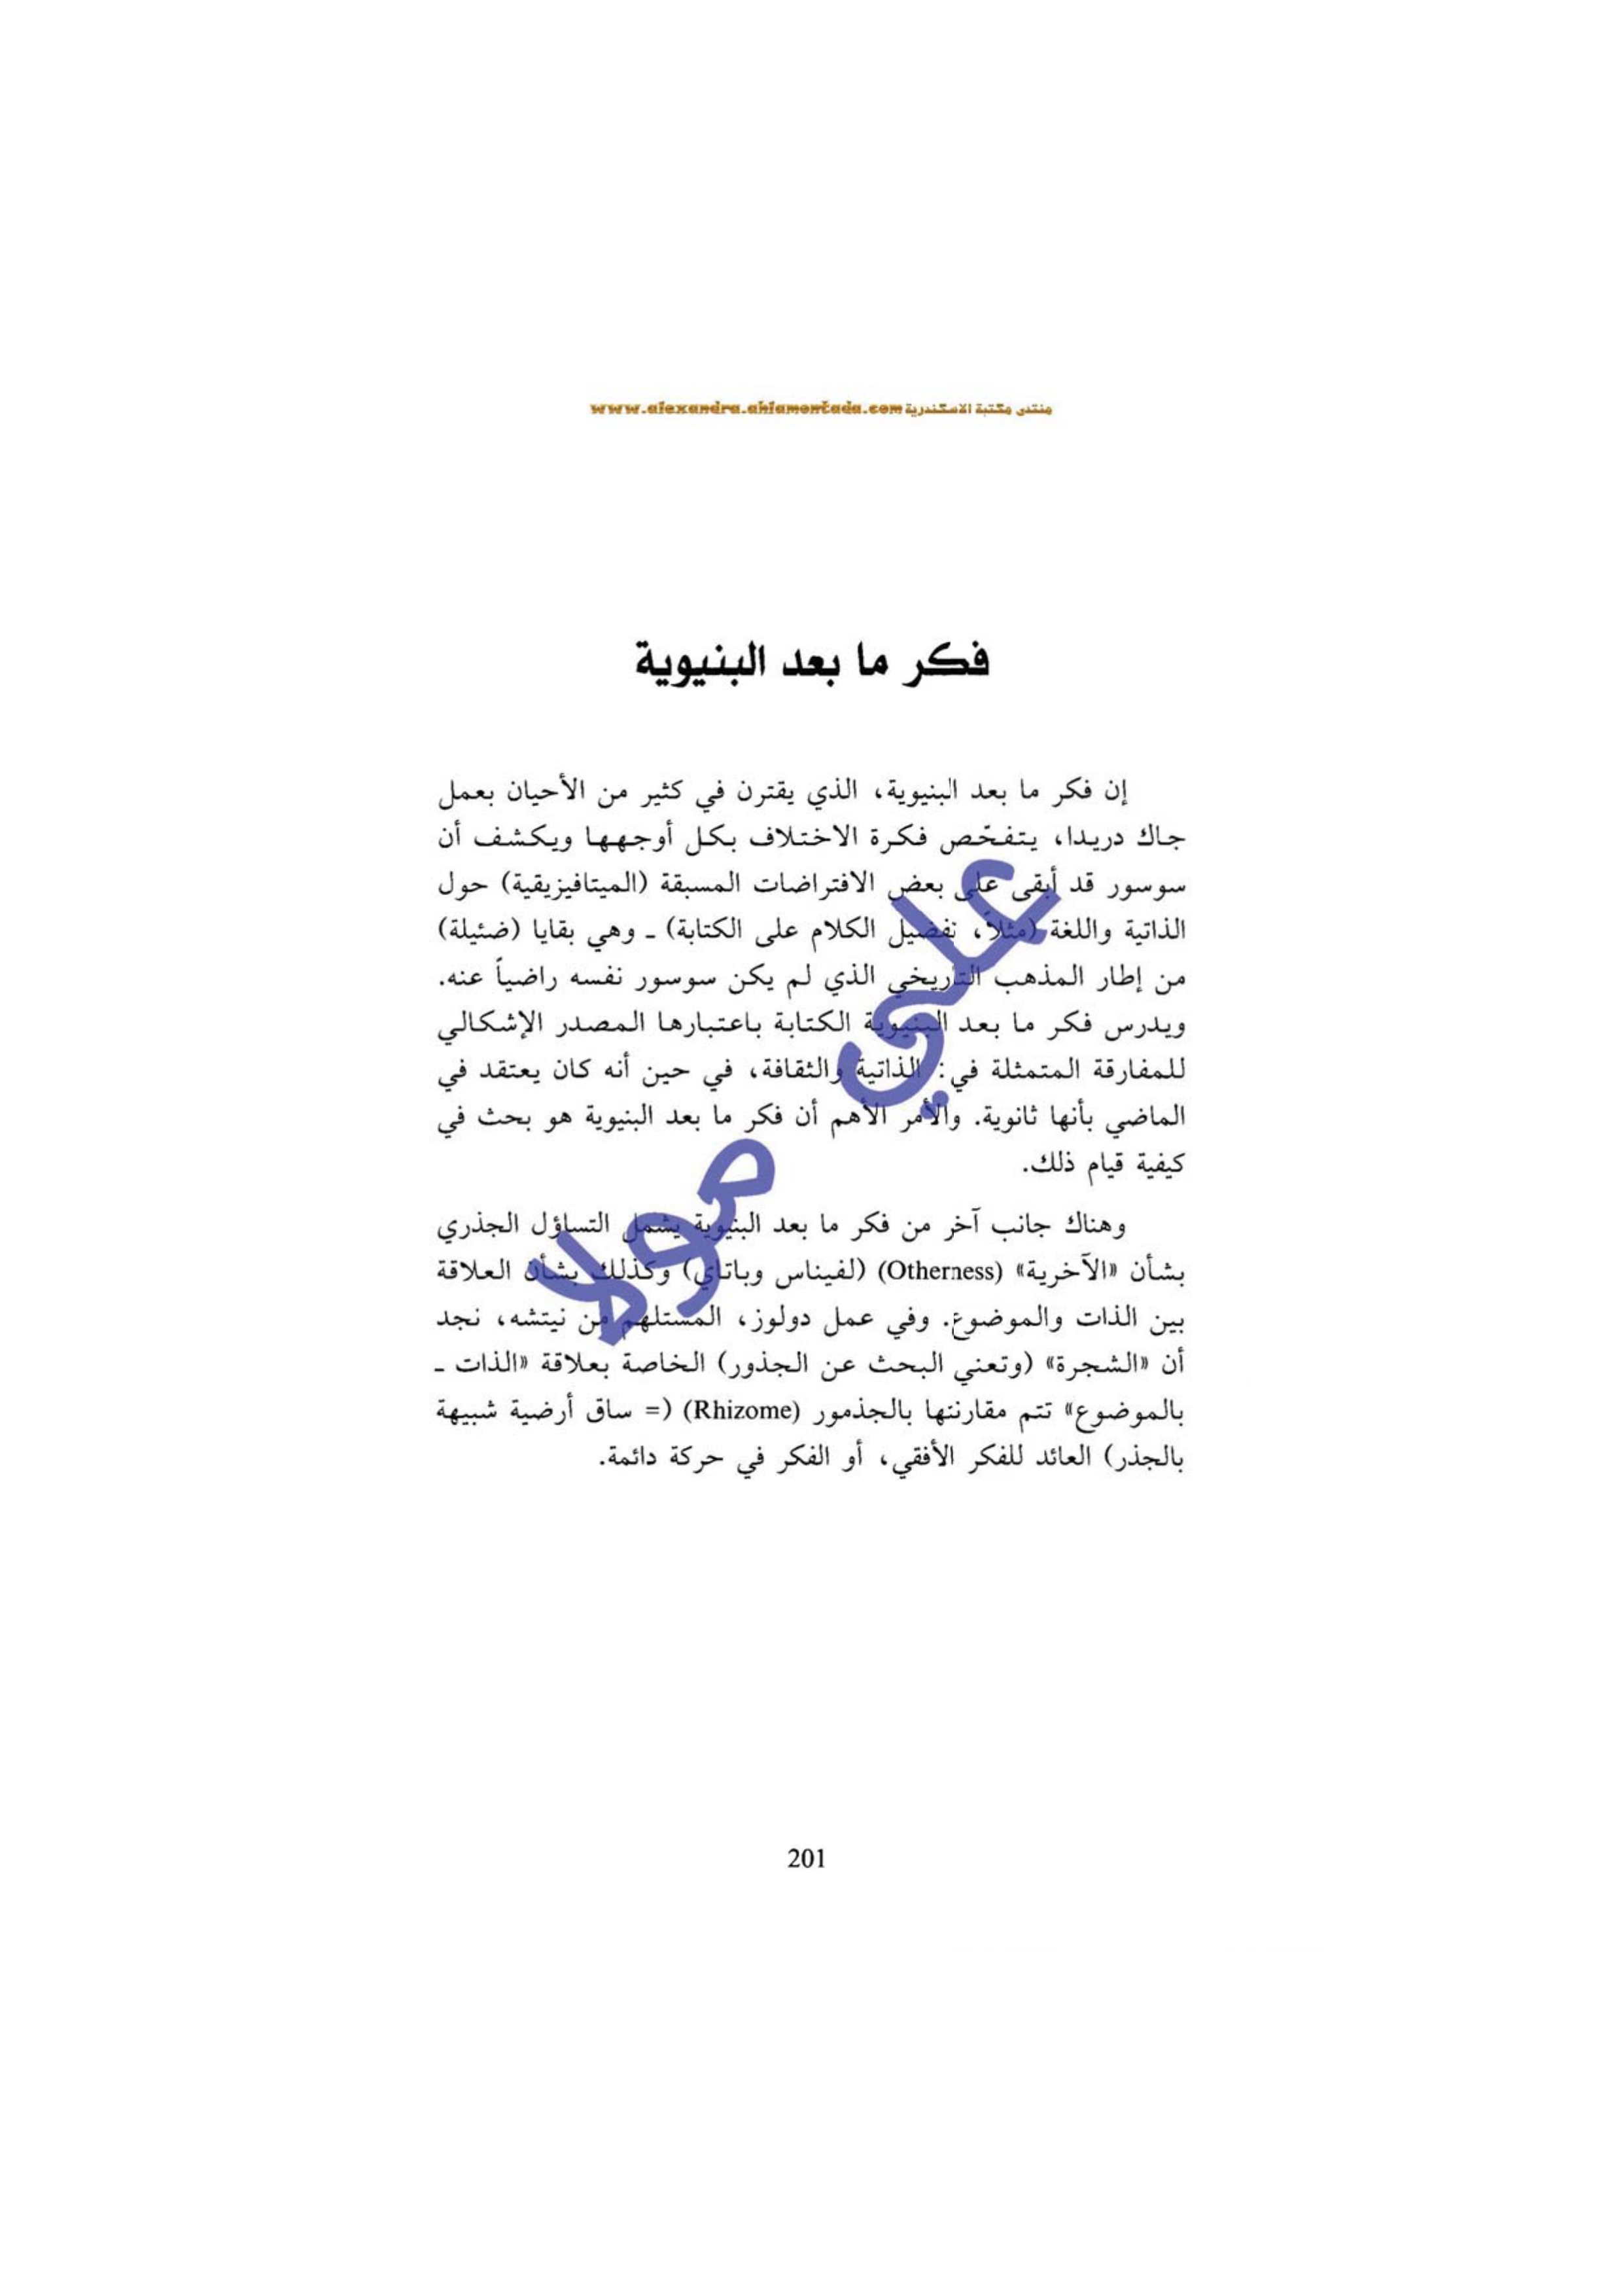 منتدى مكتبة الاسكندرية www.alexandra.ahlamontada.com
فكر ما بعد البنيوية
إن فكر ما بعد البنيوية، الذي يقترن في كثير من الأحيان بعمل
جاك دريدا، يتفحّص فكرة الاختلاف بكل أوجهها ويكشف أن
سوسور قد أبقى على بعض الافتراضات المسبقة (الميتافيزيقية) حول
الذاتية واللغة (مثلاً، تفضيل الكلام على الكتابة) ـ وهي بقايا (ضئيلة)
من إطار المذهب التاريخي الذي لم يكن سوسور نفسه راضياً عنه.
ويدرس فكر ما بعد البنيوية الكتابة باعتبارها المصدر الإشكالي
للمفارقة المتمثلة في: الذاتية والثقافة، في حين أنه كان يعتقد في
الماضي بأنها ثانوية. والأمر الأهم أن فكر ما بعد البنيوية هو بحث في
كيفية قيام ذلك.
وهناك جانب آخر من فكر ما بعد البنيوية يشمل التساؤل الجذري
بشأن «الآخرية» (Otherness) (لفيناس وباتاي) وكذلك بشأن العلاقة
بين الذات والموضوع. وفي عمل دولوز، المستلهم من نيتشه، نجد
أن «الشجرة» (وتعني البحث عن الجذور) الخاصة بعلاقة «الذات ـ
بالموضوع» تتم مقارنتها بالجذمور (Rhizome) (= ساق أرضية شبيهة
بالجذر) العائد للفكر الأفقي، أو الفكر في حركة دائمة.
علي مولا
201